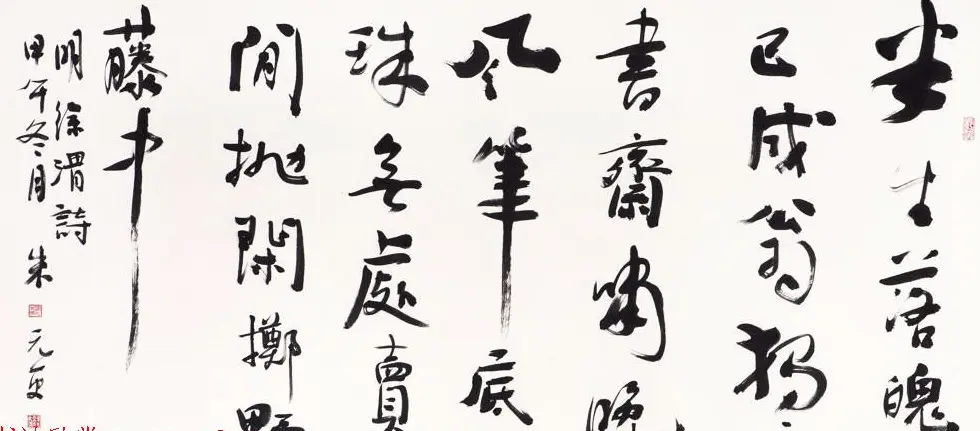 半生落魄
已成翁獨
書齋嘯晚
风筆底
珠無處賣
閒抛閑擲野
藤中
明徐渭詩
甲午冬月朱元